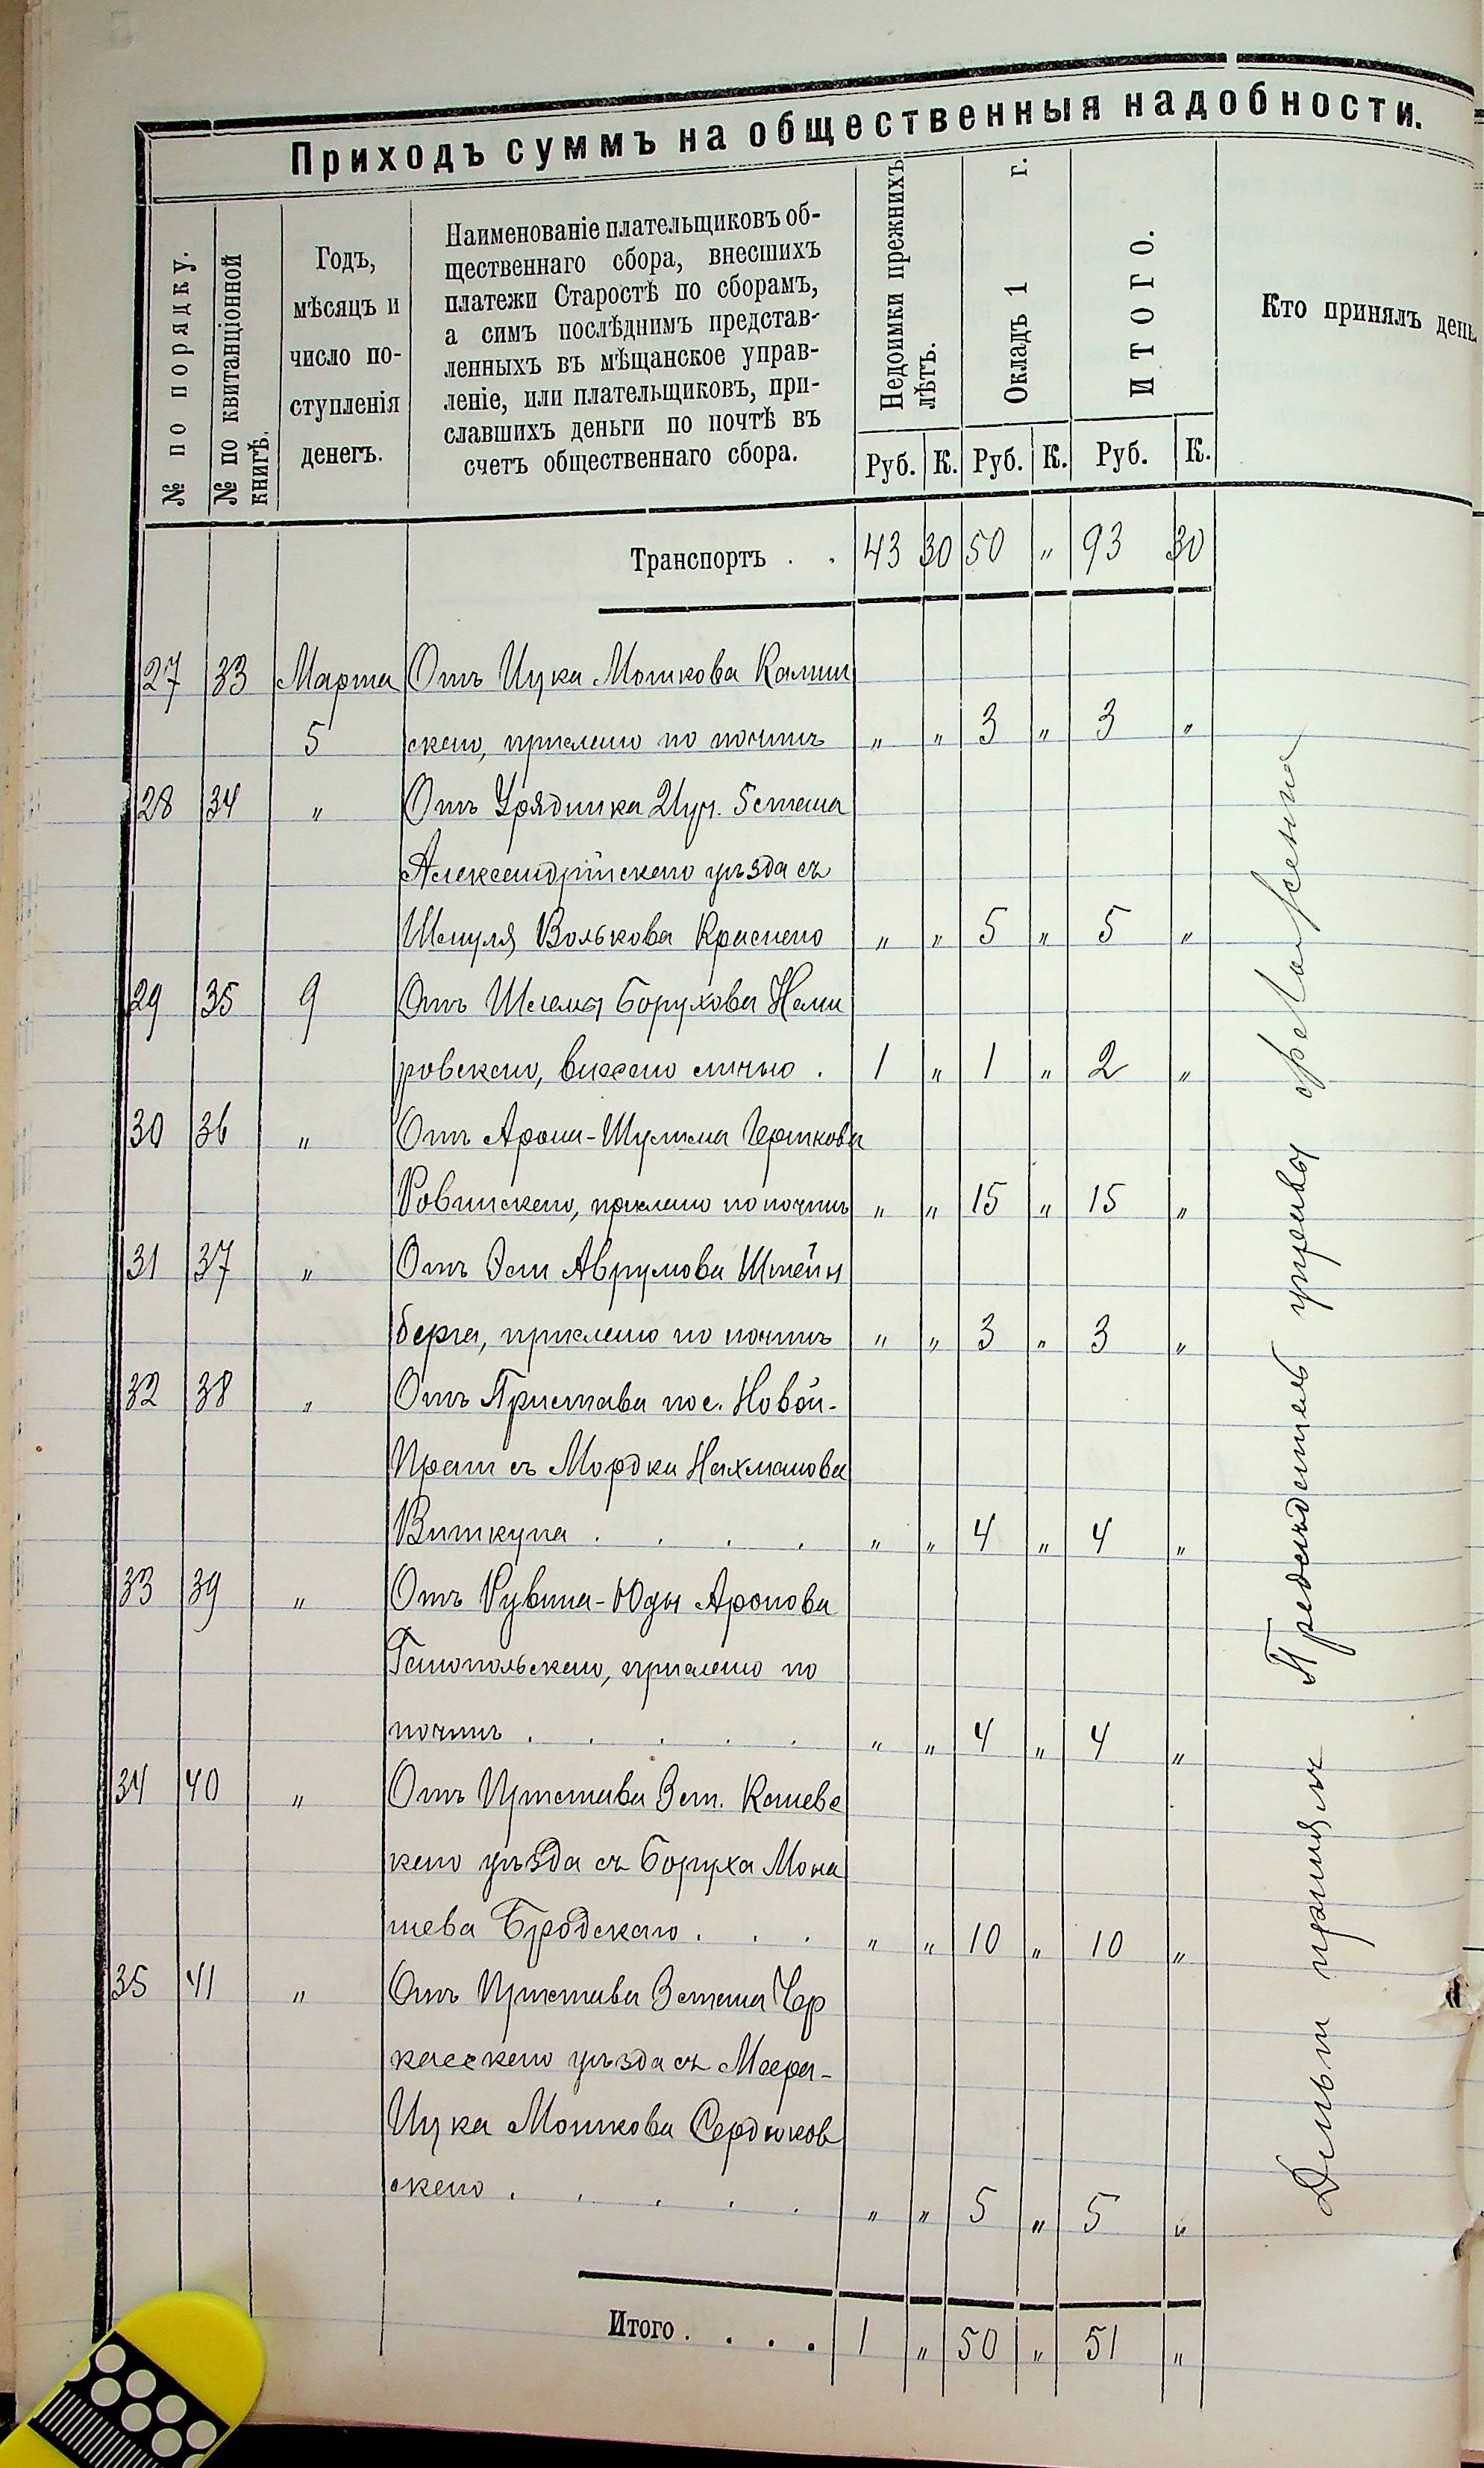 Приходъ суммъ на общественныя надобности.
№ по порядку.
№ по квитанціонной
книгѣ.
Годъ,
мѣсяцъ и
число по-
ступленія
денегъ.
Наименованіе плательщиковъ об-
щественнаго сбора, внесшихъ
платежи Старостѣ по сборамъ,
а симъ послѣднимъ представ-
ленныхъ въ мѣщанское управ-
леніе, или плательщиковъ, при-
славшихъ деньги по почтѣ въ
счетъ общественнаго сбора.
Недоимки прежнихъ
лѣтъ.
Окладъ 1 г.
ИТОГО.
Кто принялъ день
Руб. К. Руб. К. Руб. К.
Транспортъ . . 43 30 50 „ 93 30
27 33 Марта Отъ Ицка Мошкова Калин
5 скаго, прислано по почтѣ „ „ 3 „ 3 „
28 34 „ Отъ Урядника 2 Уч. 5 стана
Александрійскаго уѣзда съ
Шмуля Волькова Краснаго „ „ 5 „ 5 „
29 35 9 Отъ Шлемы Борухова Неми
ровскаго, внесено лично . 1 „ 1 „ 2 „
30 36 „ Отъ Арона-Шулима Герткова
Ровинскаго, прислано по почтѣ „ „ 15 „ 15 „
31 37 „ Отъ Эли Аврумова Штейн
берга, прислано по почтѣ „ „ 3 „ 3 „
32 38 „ Отъ Пристава пос. Новой-
Праги съ Мордки Нахманова
Виткупа . . . . „ „ 4 „ 4 „
33 39 „ Отъ Рувина-Юды Аронова
Гайнопольскаго, прислано по
почтѣ . . . . . „ „ 4 „ 4 „
34 40 „ Отъ Пристава 3 ст. Каневс
каго уѣзда съ Боруха Мона
шева Бродскаго . . . „ „ 10 „ 10 „
35 41 „ Отъ Пристава 3 стана Чер
касскаго уѣзда съ Меера-
Ицка Мошкова Сердюков
скаго . . . . . „ „ 5 „ 5 „
Итого . . . . 1 „ 50 „ 51 „
Деньги принялъ Предсѣдатель управы